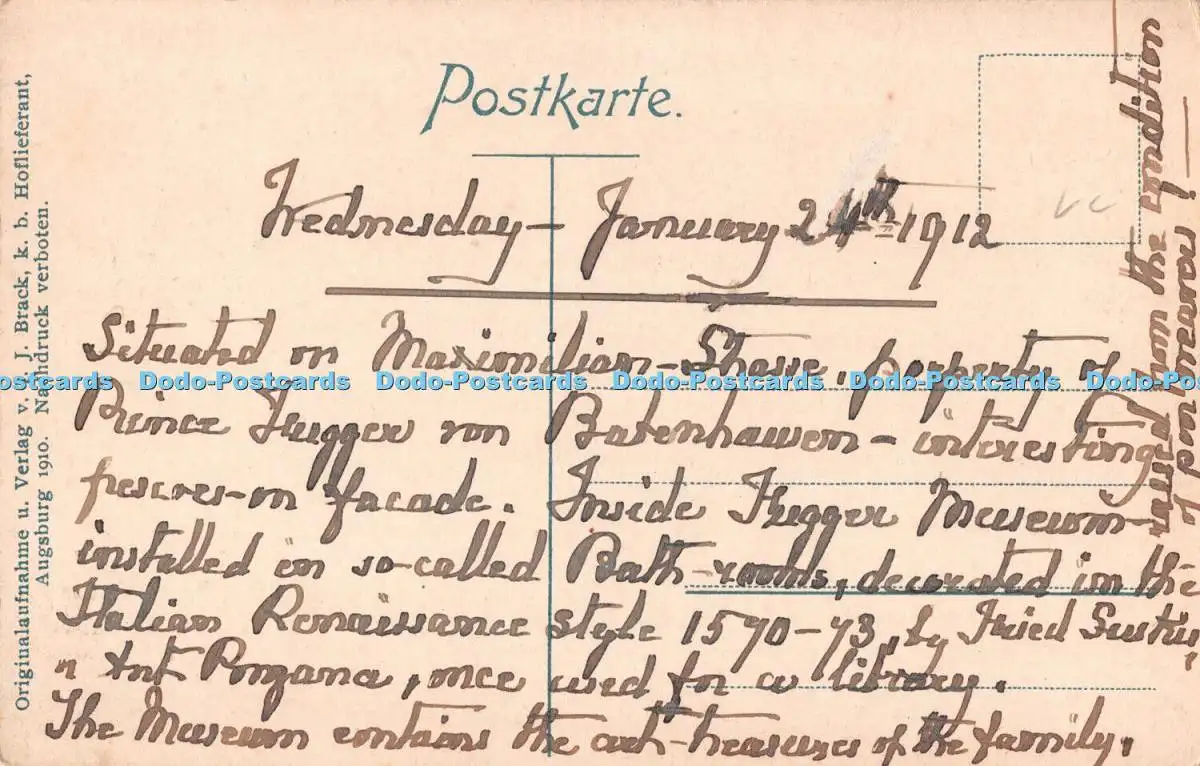 Postkarte.
Wednesday – January 24th 1912
Situated on Maximilian-Strasse, property of
Prince Fugger von Babenhausen – interesting
frescoes on facade. Inside Fugger Museum –
installed in so-called Bath-rooms, decorated in the
Italian Renaissance style 1570–73, by Fried Sustris,
" Ant Ponzana, once used for a library.
The Museum contains the art-treasures of the family,
raised
from the condition
Originalaufnahme u. Verlag v. J. J. Brack, k. b. Hoflieferant,
Augsburg 1910. Nachdruck verboten.
vc
Dodo-Postcards Dodo-Postcards Dodo-Postcards Dodo-Postcards Dodo-Postcards Dodo-Postcards